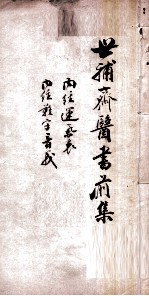 世補齋醫書前集
內經運氣表
內經難字音義